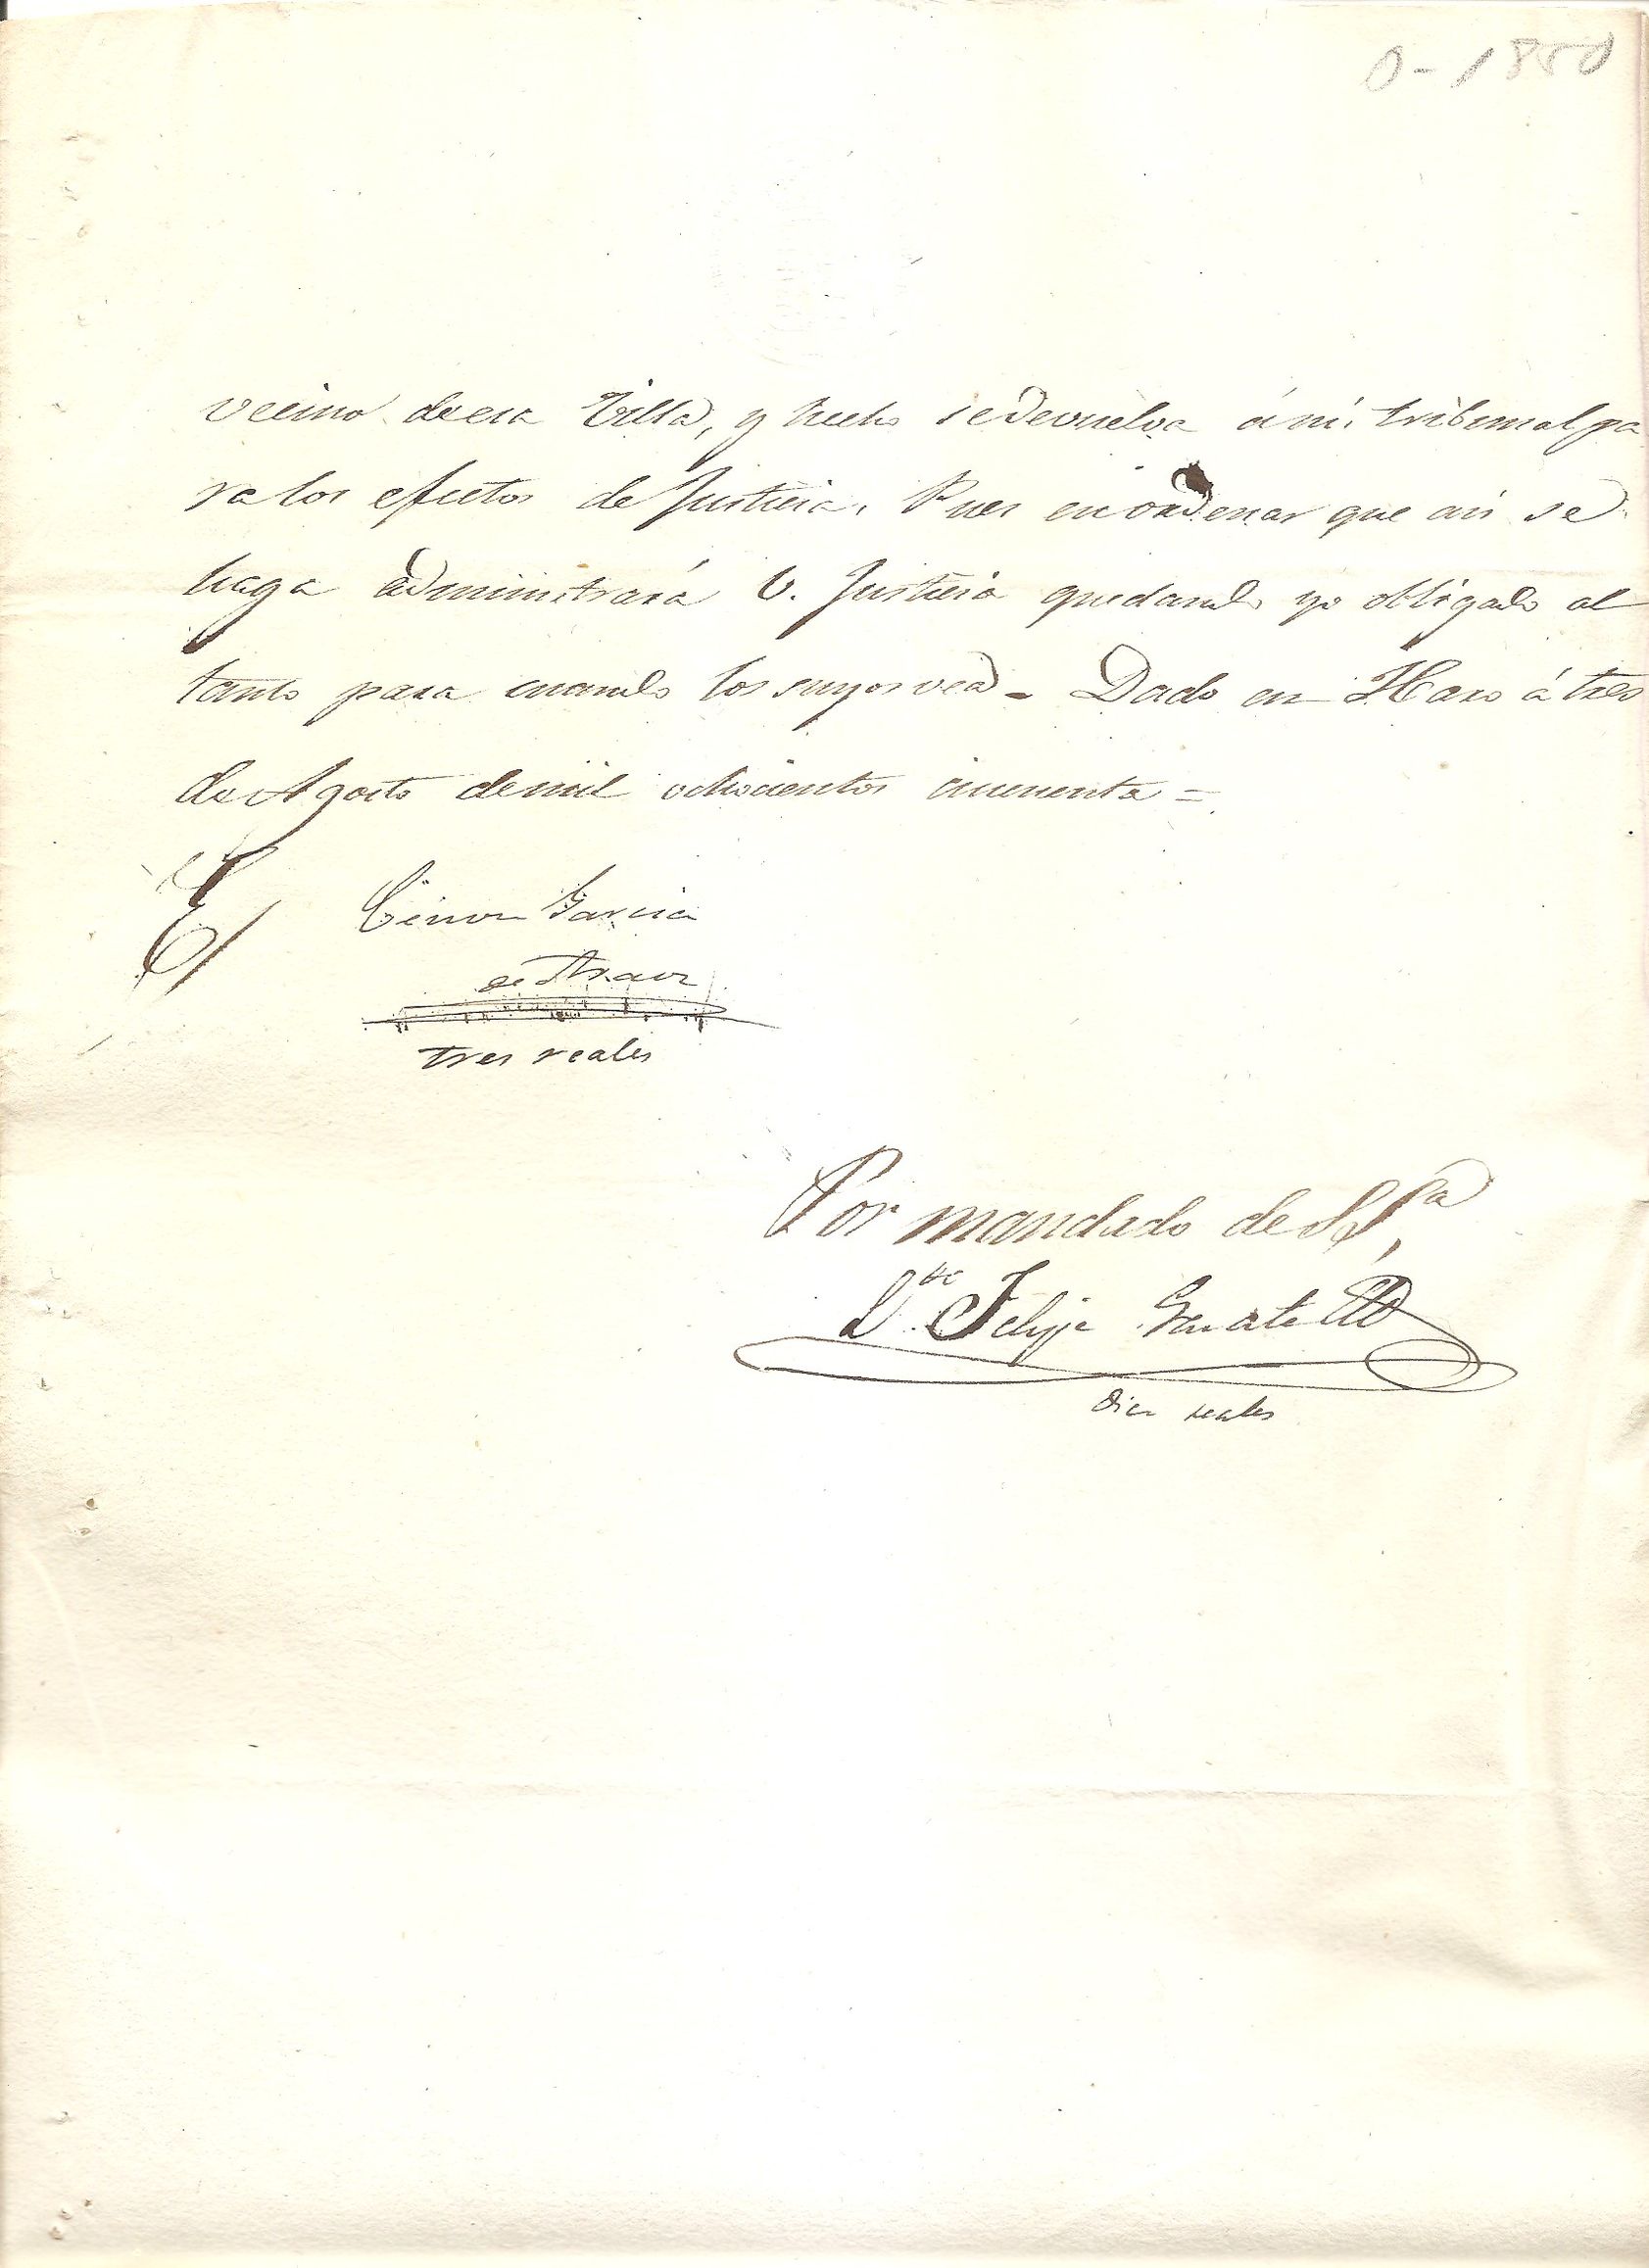 0-1850
vecino de esa Villa, y hecho se devuelva á mi tribunal pa
ra los efectos de Justicia. Pues en ordenar que asi se
haga administrará V. Justicia quedando yo obligado al
tanto para cuando los suyos vea = Dado en Haro á tres
de Agosto de mil ochocientos cincuenta =
García
de
tres reales
Por mandado de S Sª,
Felipe
Diez reales